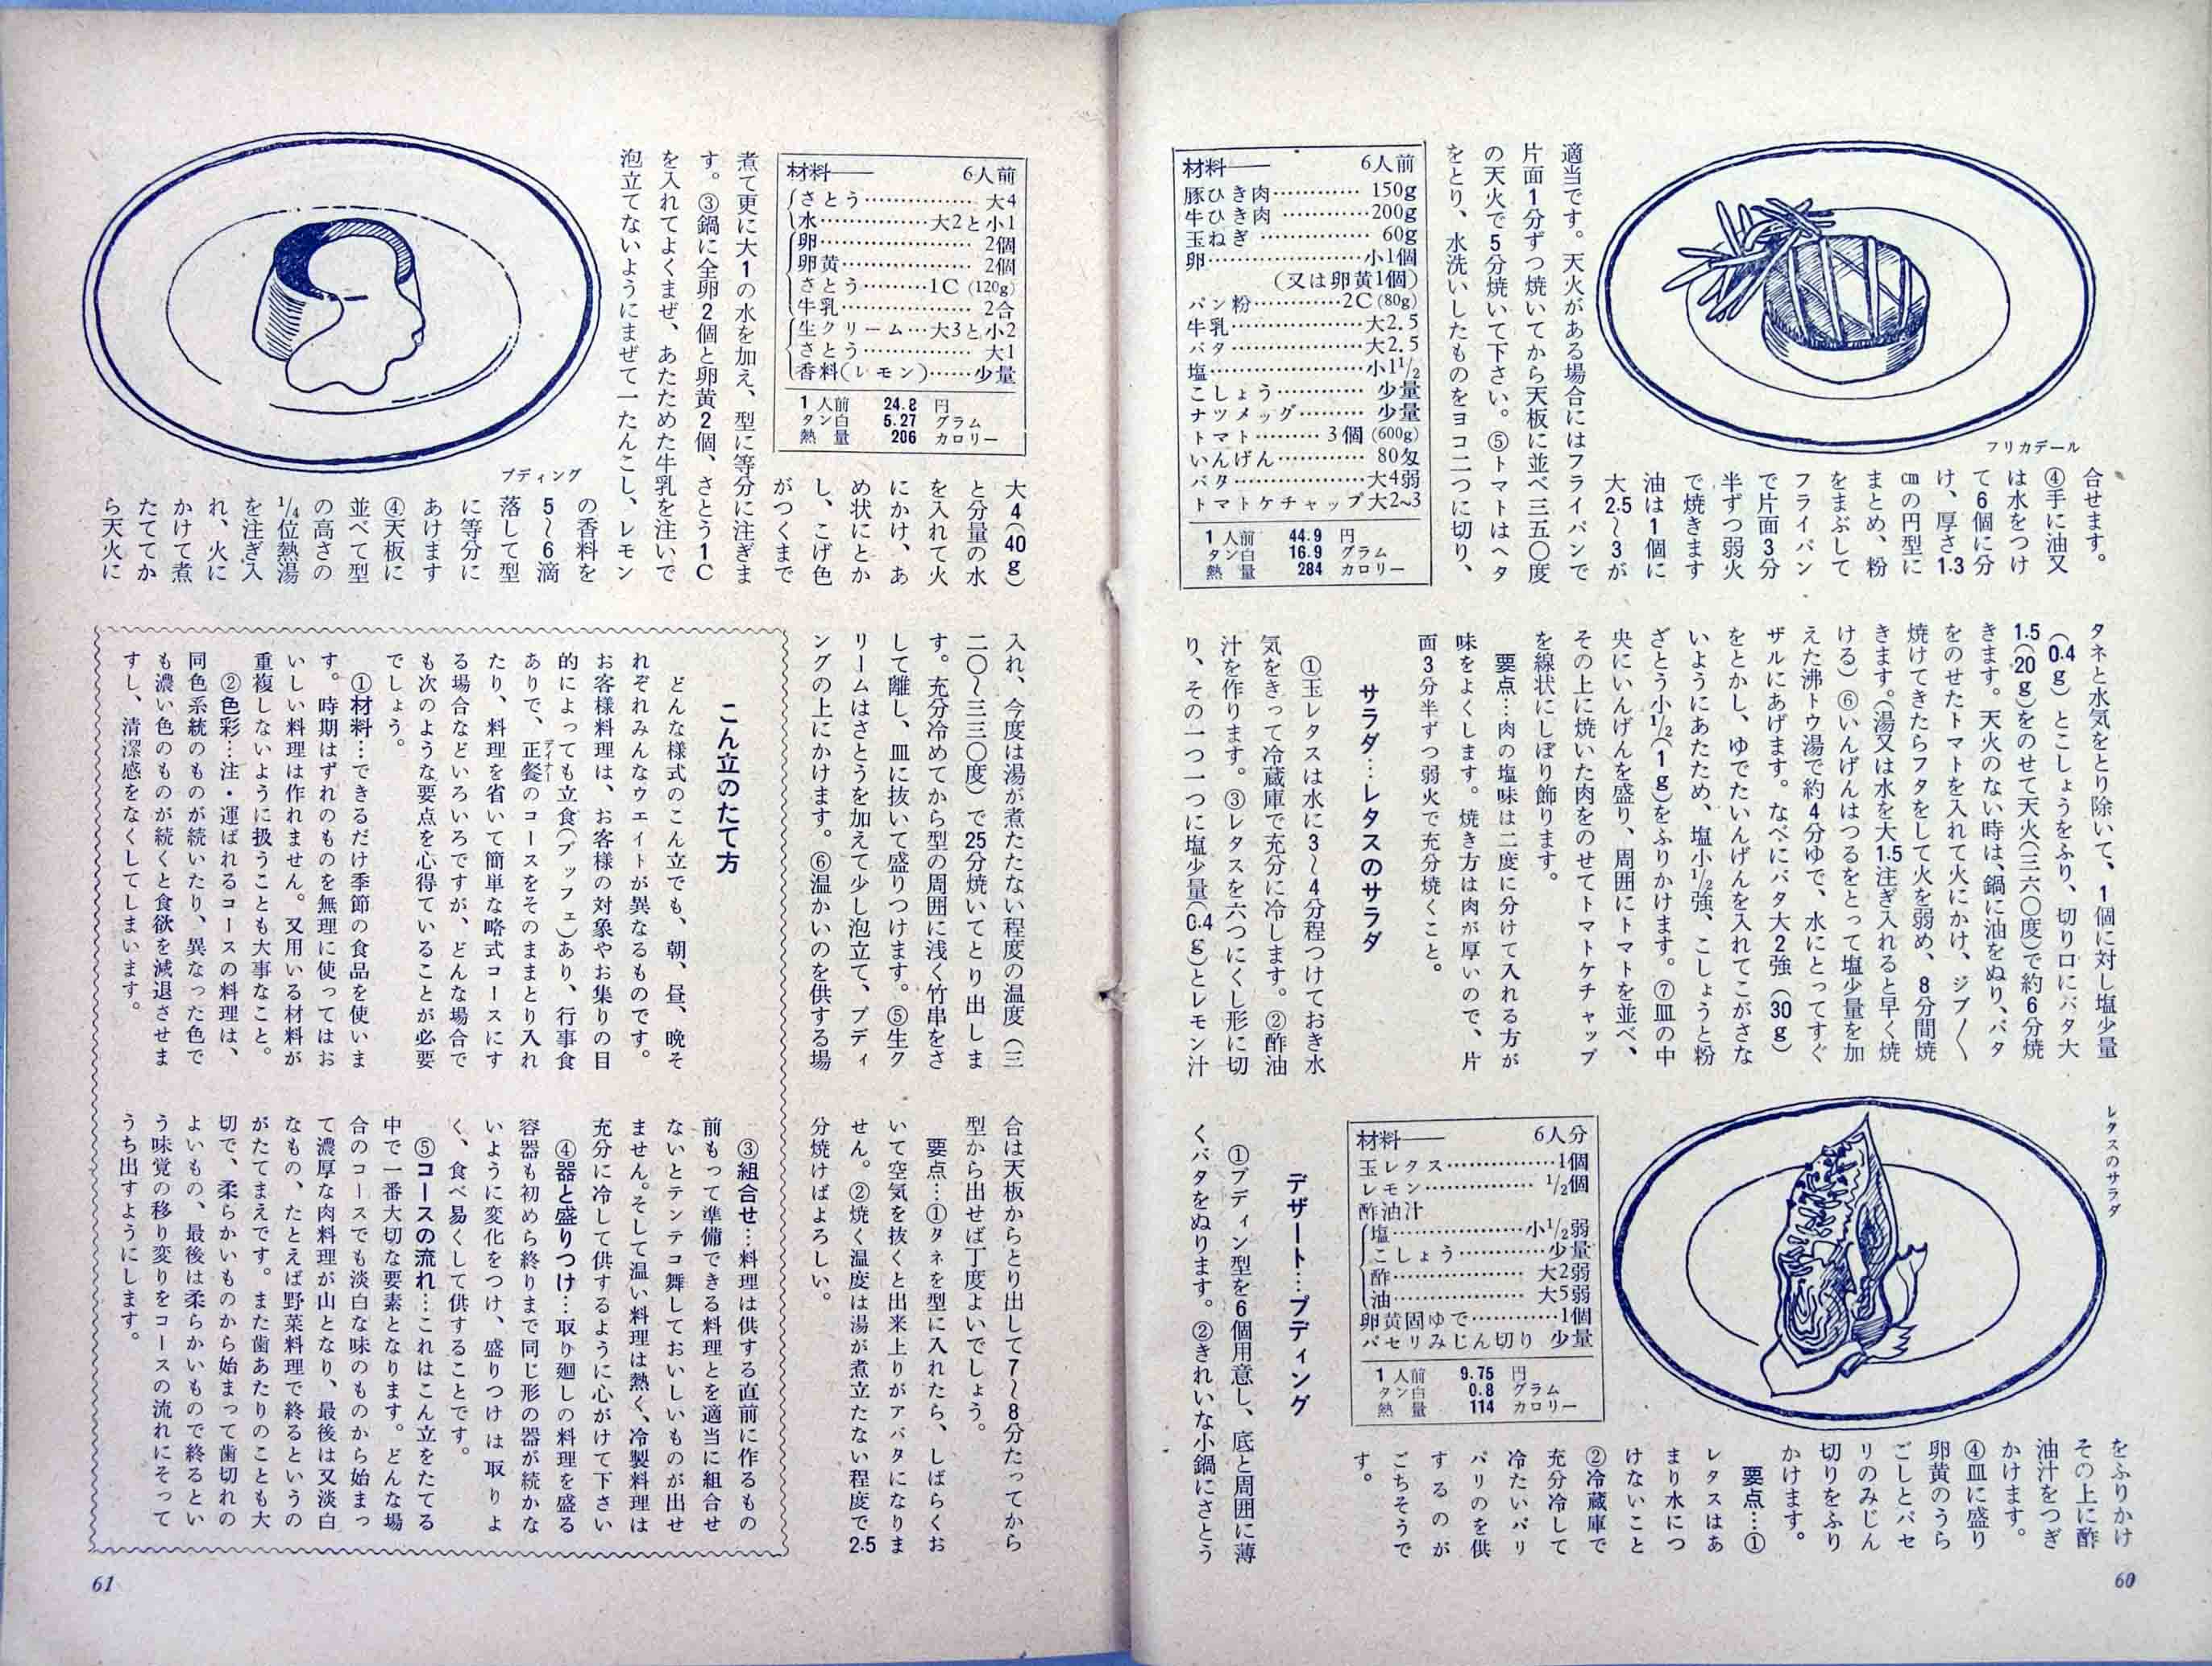 フリカデール
合せます。
④手に油又
は水をつけ
て6個に分
け、厚さ1.3
㎝の円型に
まとめ、粉
をまぶして
フライパン
で片面3分
半ずつ弱火
で焼きます
油は1個に
大2.5〜3が
適当です。天火がある場合にはフライパンで
片面1分ずつ焼いてから天板に並べ三五〇度
の天火で5分焼いて下さい。⑤トマトはヘタ
をとり、水洗いしたものをヨコ二つに切り、
材料――　6人前
豚ひき肉…………150g
牛ひき肉…………200g
玉ねぎ……………60g
卵…………………小1個
(又は卵黄1個)
パン粉…………2C(80g)
牛乳………………大2.5
バタ………………大2.5
塩…………………小1 1/2
こしょう…………少量
ナツメッグ………少量
トマト………3個(600g)
いんげん…………80匁
バタ………………大4弱
トマトケチャップ大2~3
1人前　44.9　円
タン白　16.9　グラム
熱量　284　カロリー
タネと水気をとり除いて、1個に対し塩少量
(0.4g)とこしょうをふり、切り口にバタ大
1.5(20g)をのせて天火(三六〇度)で約6分焼
きます。天火のない時は、鍋に油をぬり、バタ
をのせたトマトを入れて火にかけ、ジブ〱
焼けてきたらフタをして火を弱め、8分間焼
きます。(湯又は水を大1.5注ぎ入れると早く焼
ける)⑥いんげんはつるをとって塩少量を加
えた沸トウ湯で約4分ゆで、水にとってすぐ
ザルにあげます。なべにバタ大2強(30g)
をとかし、ゆでたいんげんを入れてこがさな
いようにあたため、塩小1/2強、こしょうと粉
ざとう小1/2(1g)をふりかけます。⑦皿の中
央にいんげんを盛り、周囲にトマトを並べ、
その上に焼いた肉をのせてトマトケチャップ
を線状にしぼり飾ります。
要点…肉の塩味は二度に分けて入れる方が
味をよくします。焼き方は肉が厚いので、片
面3分半ずつ弱火で充分焼くこと。
サラダ…レタスのサラダ
①玉レタスは水に3〜4分程つけておき水
気をきって冷蔵庫で充分に冷します。②酢油
汁を作ります。③レタスを六つにくし形に切
り、その一つ一つに塩少量(0.4g)とレモン汁
レタスのサラダ
をふりかけ
その上に酢
油汁をつぎ
かけます。
④皿に盛り
卵黄のうら
ごしとパセ
リのみじん
切りをふり
かけます。
要点…①
レタスはあ
まり水につ
けないこと
②冷蔵庫で
充分冷して
冷たいパリ
パリのを供
するのが
ごちそうで
す。
材料――　6人分
玉レタス……………1個
レモン……………1/2個
酢油汁
塩………………小1/2弱
こしょう…………少量
酢………………大2弱
油………………大5弱
卵黄固ゆで…………1個
パセリみじん切り 少量
1人前　9.75　円
タン白　0.8　グラム
熱量　114　カロリー
デザート…プディング
①プディン型を6個用意し、底と周囲に薄
くバタをぬります。②きれいな小鍋にさとう
60
大4(40g)
と分量の水
を入れて火
にかけ、あ
め状にとか
し、こげ色
がつくまで
材料――　6人前
さとう……………大4
水……………大2と小1
卵…………………2個
卵黄………………2個
さとう………1C(120g)
牛乳………………2合
生クリーム…大3と小2
さとう……………大1
香料(レモン)……少量
1人前　24.8　円
タン白　5.27　グラム
熱量　206　カロリー
煮て更に大1の水を加え、型に等分に注ぎま
す。③鍋に全卵2個と卵黄2個、さとう1C
を入れてよくまぜ、あたためた牛乳を注いで
泡立てないようにまぜて一たんこし、レモン
プディング
の香料を
5〜6滴
落して型
に等分に
あけます
④天板に
並べて型
の高さの
1/4位熱湯
を注ぎ入
れ、火に
かけて煮
たててか
ら天火に
入れ、今度は湯が煮たたない程度の温度(三
二〇〜三三〇度)で25分焼いてとり出しま
す。充分冷めてから型の周囲に浅く竹串をさ
して離し、皿に抜いて盛りつけます。⑤生ク
リームはさとうを加えて少し泡立て、プディ
ングの上にかけます。⑥温かいのを供する場
合は天板からとり出して7〜8分たってから
型から出せば丁度よいでしょう。
要点…①タネを型に入れたら、しばらくお
いて空気を抜くと出来上りがアバタになりま
せん。②焼く温度は湯が煮立たない程度で2.5
分焼けばよろしい。
こん立のたて方
どんな様式のこん立でも、朝、昼、晩そ
れぞれみんなウエイトが異なるものです。
お客様料理は、お客様の対象やお集りの目
的によっても立食(ブッフェ)あり、行事食
ありで、正餐のコースをそのままとり入れ
ディナー
たり、料理を省いて簡単な略式コースにす
る場合などいろいろですが、どんな場合で
も次のような要点を心得ていることが必要
でしょう。
①材料…できるだけ季節の食品を使いま
す。時期はずれのものを無理に使ってはお
いしい料理は作れません。又用いる材料が
重複しないように扱うことも大事なこと。
②色彩…注・運ばれるコースの料理は、
同色系統のものが続いたり、異なった色で
も濃い色のものが続くと食欲を減退させま
すし、清潔感をなくしてしまいます。
③組合せ…料理は供する直前に作るもの
前もって準備できる料理とを適当に組合せ
ないとテンテコ舞しておいしいものが出せ
ません。そして温い料理は熱く、冷製料理は
充分に冷して供するように心がけて下さい
④器と盛りつけ…取り廻しの料理を盛る
容器も初めら終りまで同じ形の器が続かな
いように変化をつけ、盛りつけは取りよ
く、食べ易くして供することです。
⑤コースの流れ…これはこん立をたてる
中で一番大切な要素となります。どんな場
合のコースでも淡白な味のものから始まっ
て濃厚な肉料理が山となり、最後は又淡白
なもの、たとえば野菜料理で終るというの
がたてまえです。また歯あたりのことも大
切で、柔らかいものから始まって歯切れの
よいもの、最後は柔らかいもので終るとい
う味覚の移り変りをコースの流れにそって
うち出すようにします。
61